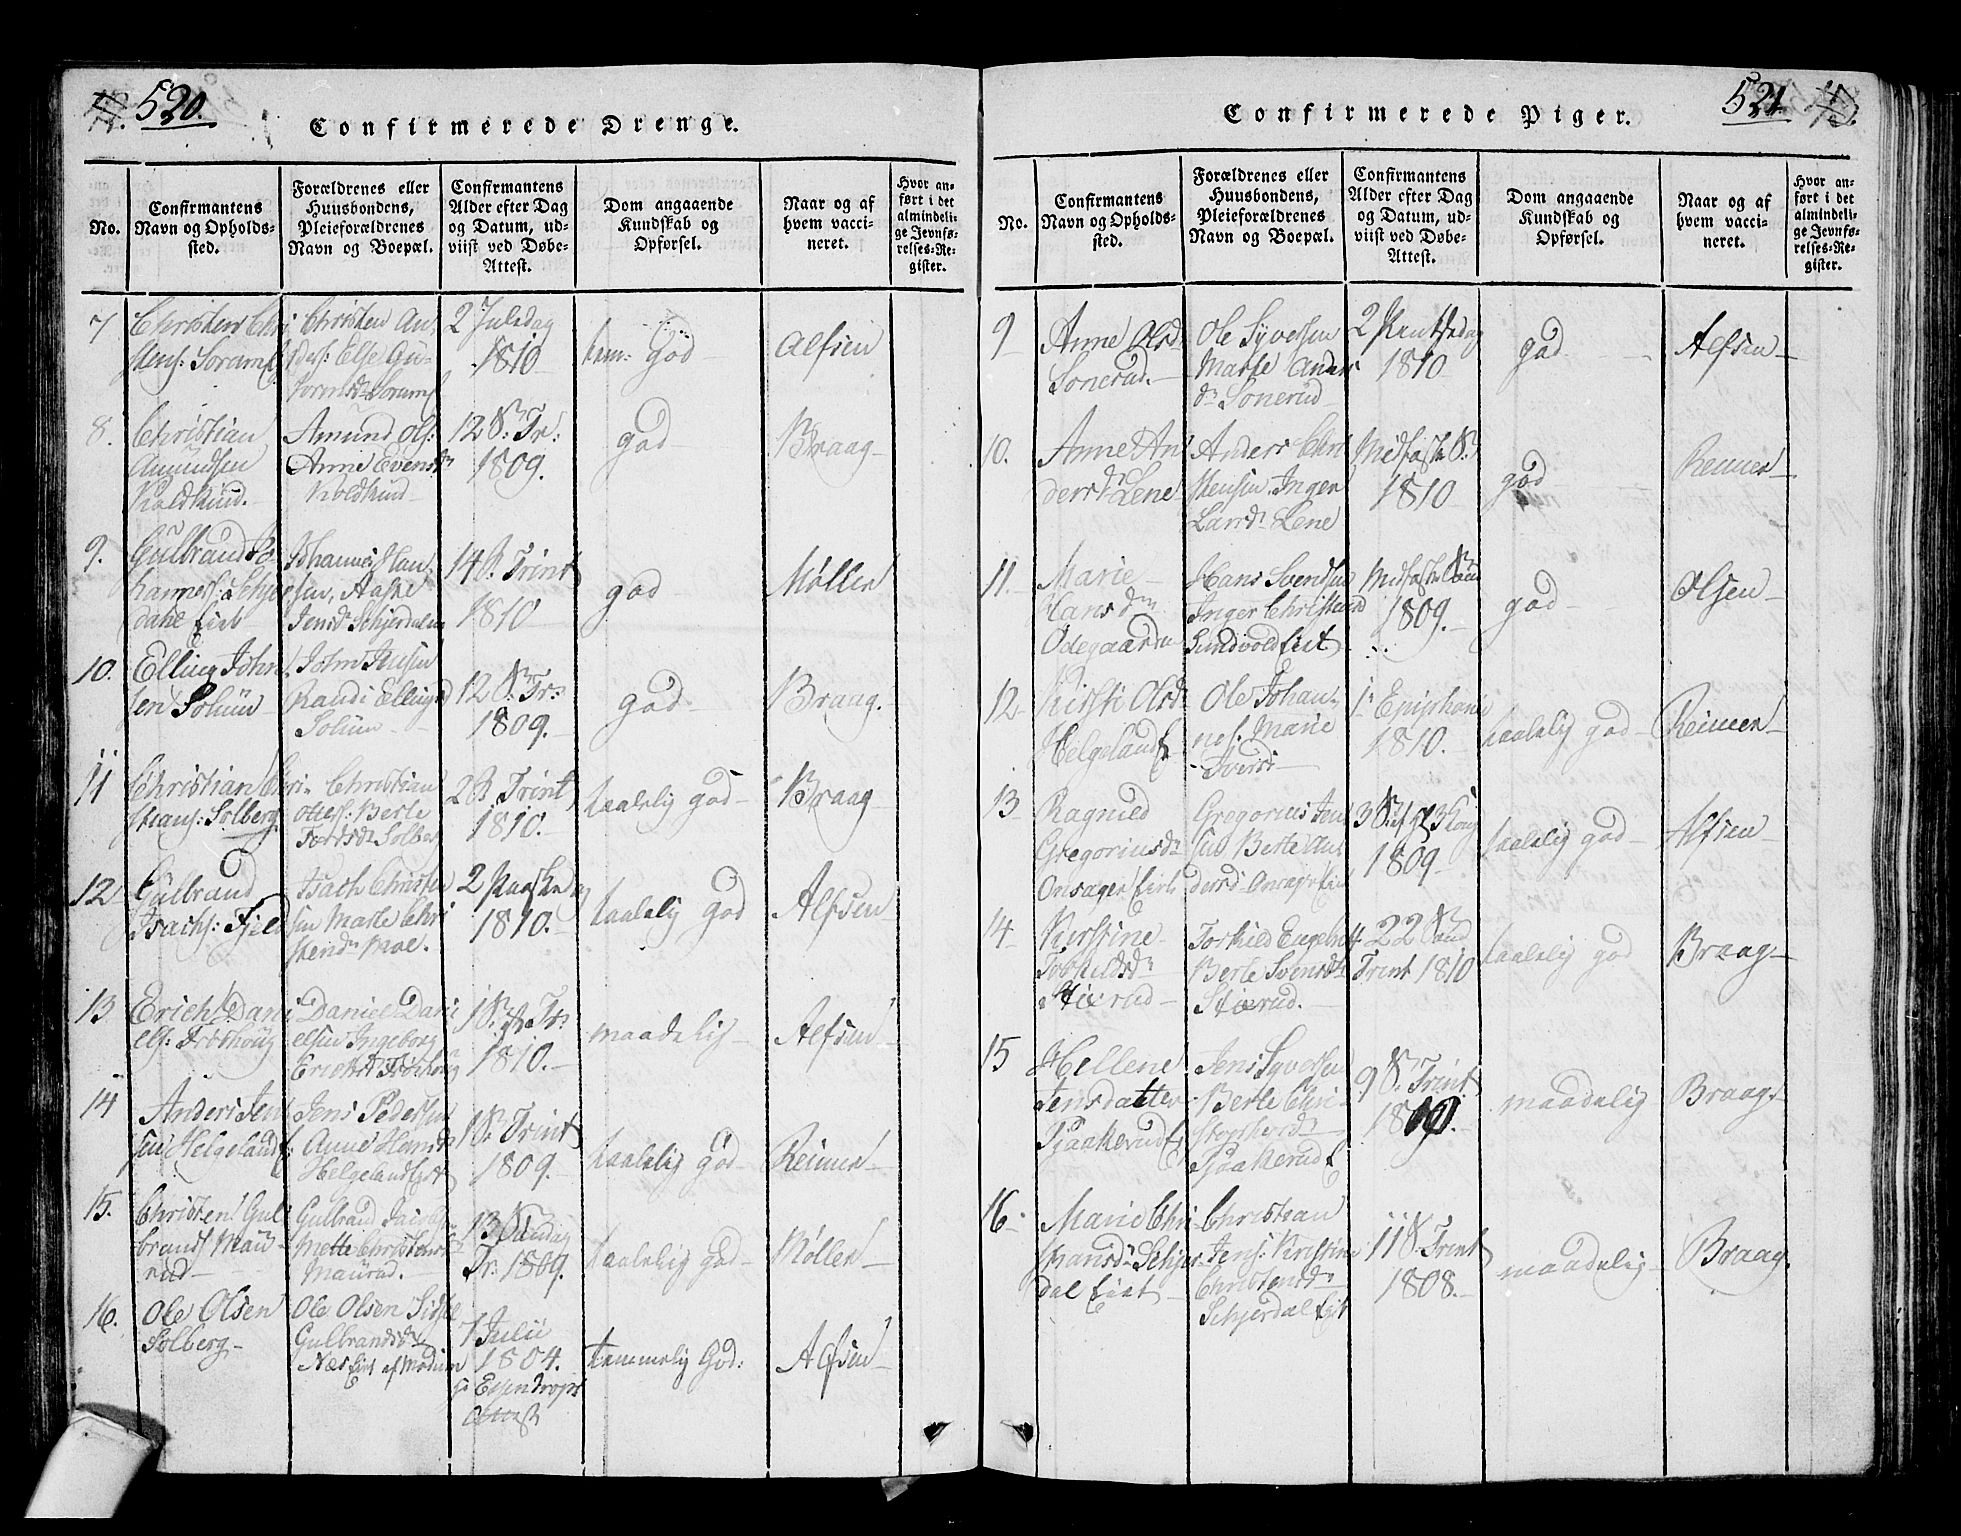 520.
Confirmerede Drenge.
No.
Confirmantens
Navn og Opholds-
sted.
Forældrenes eller
Huusbondens,
Pleieforældrenes
Navn og Boepæl.
Confirmantens
Alder efter Dag
og Datum, ud-
viist ved Døbe-
Attest.
Dom angaaende
Kundskab og
Opførsel.
Naar og af
hvem vacci-
neret.
Hvor an-
ført i det
almindeli-
ge Jevnfø-
relses-Re-
gister.
7
Christen Chri
stens: Soram
Christen An
ders: Else Gu-
tormsd. Soram
2 Juledag
1810
tem: God
Alfsen
8.
Christian
Amundsen
Koldkind.
Amund Ols:
Anne Evensdr
Koldkind
12 S. Tr:
1809.
god
Braag
9.
Gulbrand Jo
hanness: Schjer
dahl Eiet
Johannes Han
sen, Aaste
Jensd Schjerdalen
14 S. Trint
1810
god
Møller
10.
Elling John
sen Solum
John Jensen
Randi Ellingsd
Solum
12 S. Tr:
1809.
god
Braag.
11
Christian Chri
stians: Solberg
Christian
Ottes: Berte
Tordsdr Solberg
2 S. Trint
1810.
taalelig god
Braag
12
Gulbrand
Isachs: Fjeld
Isach Christen
sen Marte Chri
stensdr Moe.
2 Paaskedag
1810.
taalelig god
Alfsen
13
Erich Dani
els: Frøshoug
Daniel Dani
elsen Ingeborg
Erichsd Frøshoug
1 S. p. Tr.
1810.
maadelig
Alfsen
14
Anders Jen
sen Helgeland E:
Jens Pedersen
Anne Hansd
Helgelands Eiet
1 S. Trint
1809.
taalelig god
Reimer
15.
Christen Gul
brands Mau
rud
Gulbrand Jacobs
Mette Christensd
Maurud.
13 Søndag
Tr. 1809.
taalelig god
Møller
16.
Ole Olsen
Solberg
Ole Olsen Sidsel
Gulbrandsdr
Næs Eiet af Modum
7 Julii
1804.
Essendrops
Attest
temmelig God:
Alfsen
521.
Confirmerede Piger.
No.
Confirmantens
Navn og Opholds-
sted.
Forældrenes eller
Huusbondens,
Pleieforældrenes
Navn og Boepæl.
Confirmantens
Alder efter Dag
og Datum, ud-
viist ved Døbe-
Attest.
Dom angaaende
Kundskab og
Opførsel.
Naar og af
hvem vacci-
neret.
Hvor an-
ført i det
almindeli-
ge Jevnfø-
relses-Re-
gister.
9
Anne Olsd
Sonerud.
Ole Syversen
Marte Anders
dr Sonerud
2 Pintsedag
1810
god
Alfsen
10.
Anne An
dersd Lene
Anders Chri
stensen Inger
Larsdr Lene
Midfaste S.
1810
god
Reimer
11.
Marie
Hansdr
Ødegaarden
Hans Svendsen
Inger Christensd
Sundvold Eiet
Midfaste Søn
1809.
god
Olsen
12
Kirsti Olsd
Helgeland E
Ole Johan
nes. Marie
Iversd
1 Epiphania
1810.
taalelig god
Reimer
13
Ragnild
Gregoriusdr
Onsager Eiet
Gregorius Jen
sen Berte An
dersd Onsager Eiet
1809
taalelig god
Alfsen
14
Kirstine
Torkildsdr
Stixrud
Torkild Engebret
Berte Svensdtr
Stixrud.
22 Sønd
Trint 1810
taalelig god
Braag
15
Hellene
Jensdatter
Pjaakerud E
Jens Syversen
Berte Chri
stophersdr
Pjaakerud E
9 S. Trint
1810.
maadelig
Braag
16
Marie Chri
stiansdr Schjer
dal Eiet
Christian
Jens: Kristine
Christensdr
Schjerdal Eiet
11 S. Trint
1808.
maadelig
Braag.